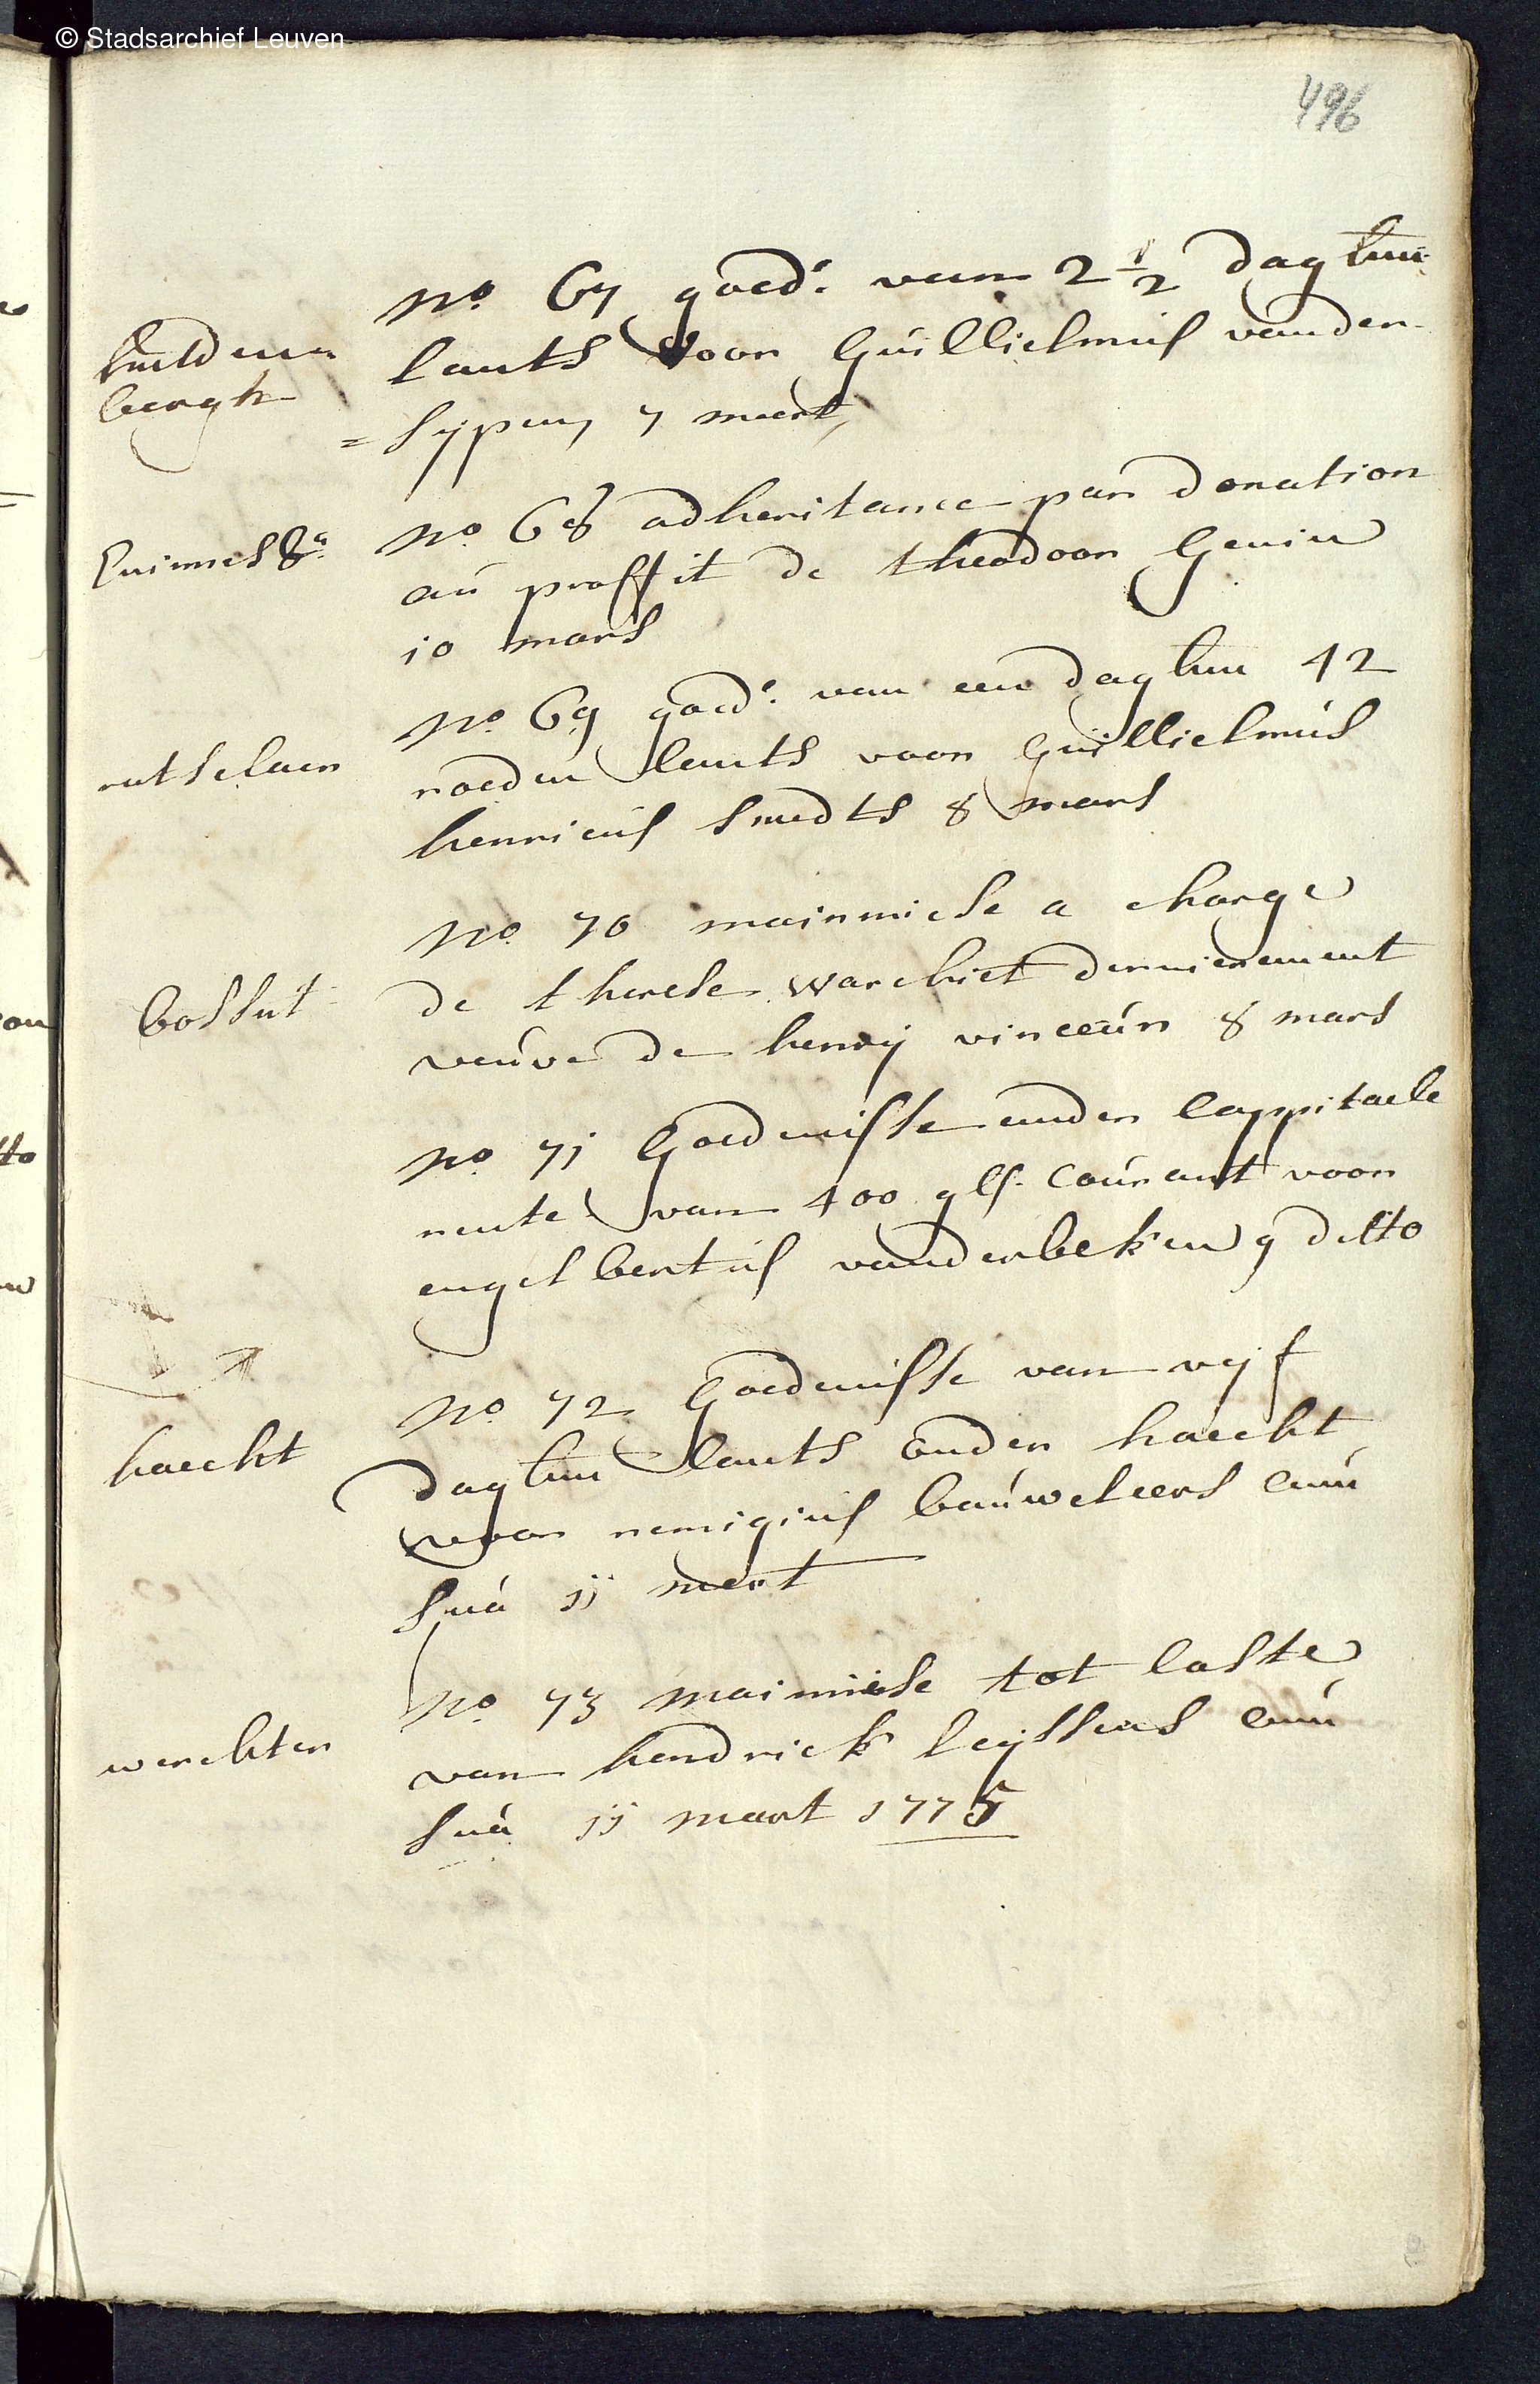 © Stadsarchief Leuven
496
huldenn
bergh
No 67 goed.e van 2 1/2 daghm
lants voor Guillielmus vander
= sypen 7 meert
No 68 adheritance par donation
au proffit de theodoor Genin
10 mars
rotselaer
No 69 goed.e van een daghm 42
roeden lants voor Guillielmus
henricus smedts 8 mars
bossut
No 70 mainmiese a charge
de therese warchiet dernierement
veuve de henry vinceur 8 mars
No 71 Goedenisse ander cappitaele
rente van 400 gls. courant voor
engelbertus vanderbeken 9 ditto
haecht
No 72 Goedenisse van vyf
daghm lants onder haecht
voor remigius bauweleers cum
sua 11 mert
werchter
No 73 maimiese tot laste
van hendrick leyssens cum
sua 11 mart 1775